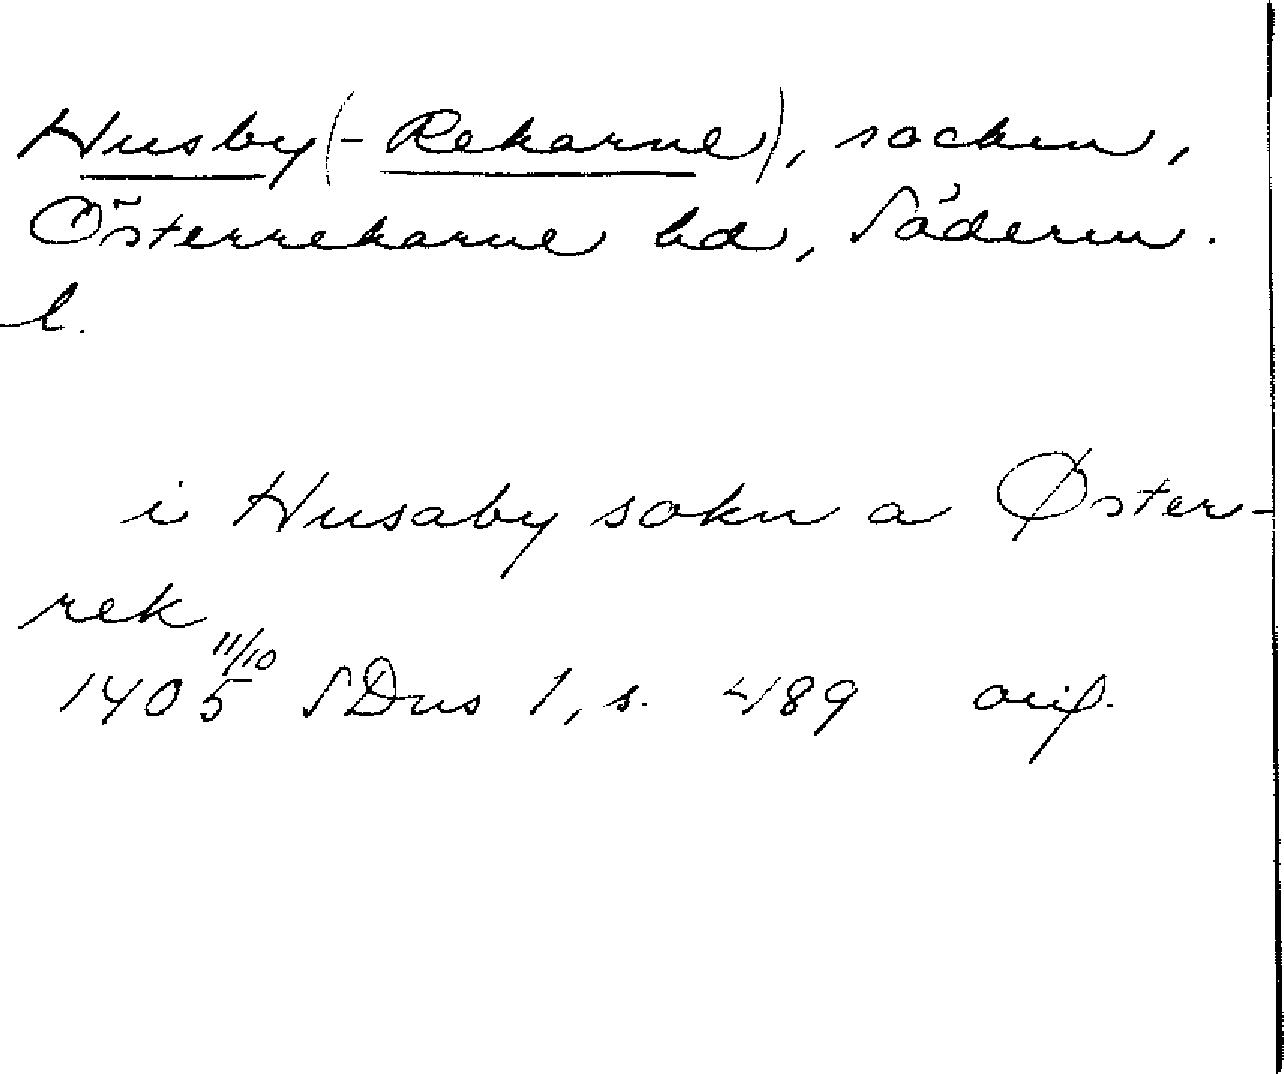 Husby(-Rekarne), socken,
Österrekarne hd, Söderm.
l.
i Husaby sokn a Øster-
rek
1405 11/10 SDns 1, s. 489 orig.